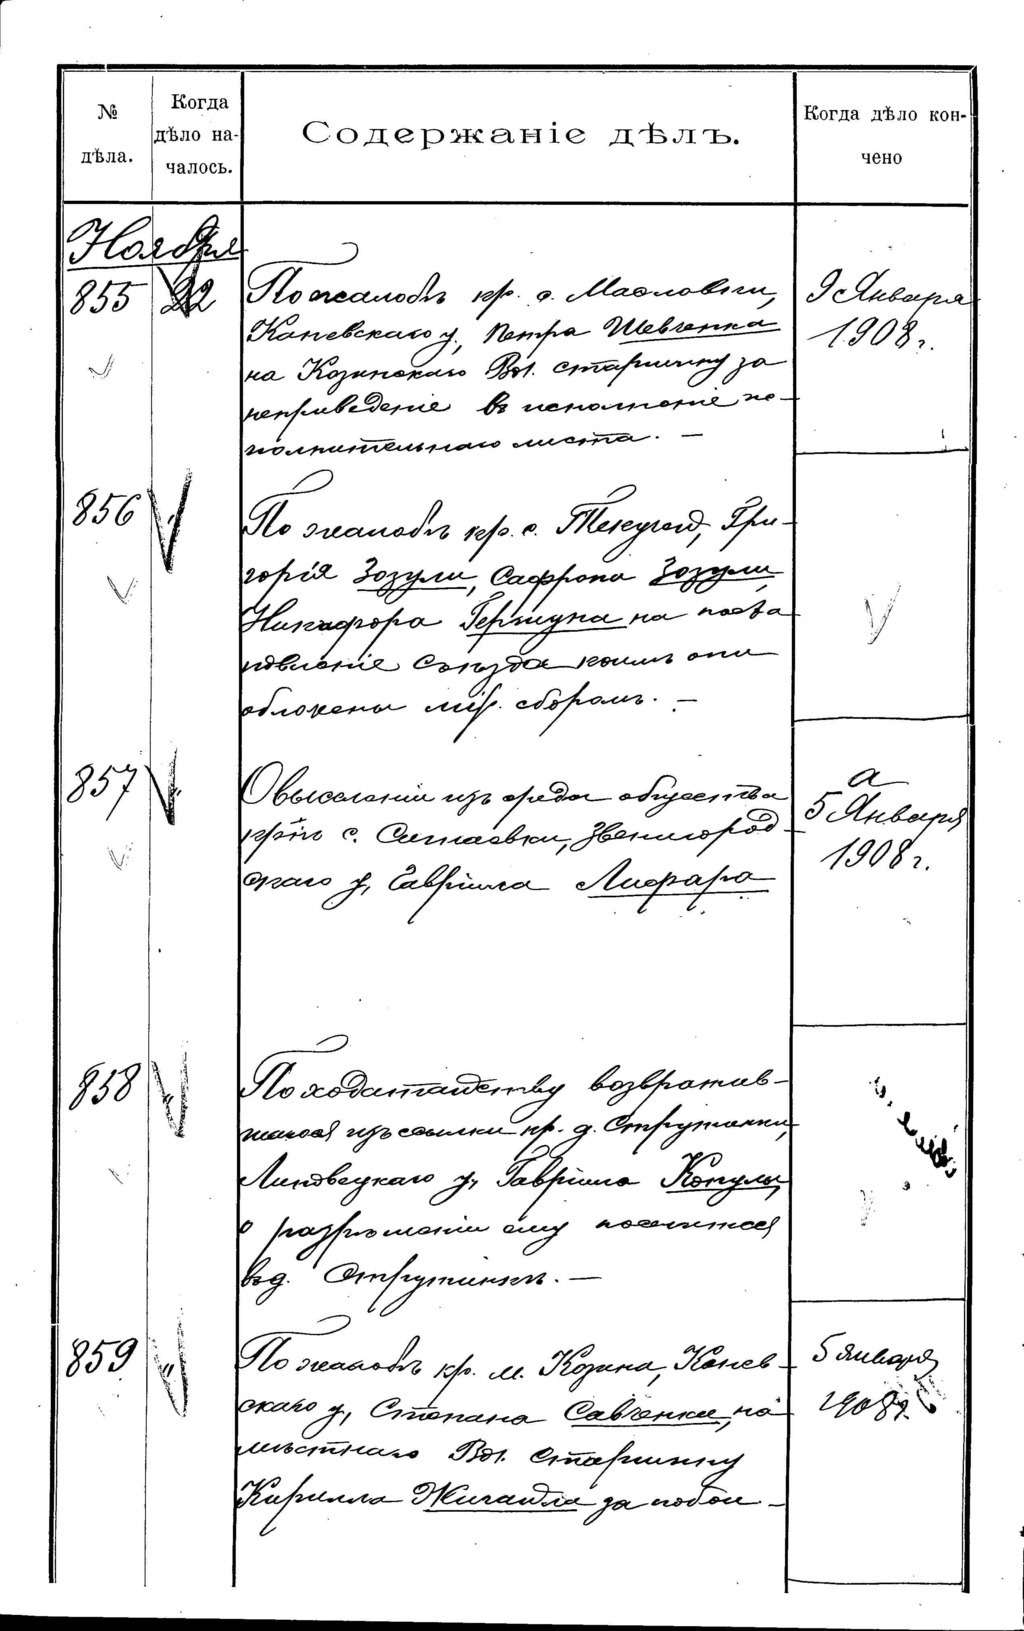 № дѣла.
Когда дѣло на-
чалось.
Содержаніе дѣлъ.
Когда дѣло кон-
чено
Ноября
855 22
По жалобѣ кр. с. Масловки,
Каневскаго у., Петра Шевченка
на Козинскаго Вол. старшину за
неприведеніе въ исполненіе ис-
полнительнаго листа. —
9 Января
1908 г.
856
По жалобѣ кр. с. Текучей, Гри-
горія Зозули, Сафрона Зозули,
Никифора Гержуна на поста
новленіе Съѣзда коимъ они
обложены мір. сборомъ. —
857
О выселеніи изъ среды общества
кр-нъ с. Сигнаевки, Звенигород
скаго у., Гавріила Лифара
5 Января
1908 г.
858 "
По ходатайству возвратив-
шагося изъ ссылки кр. д. Струтинки,
Липовецкаго у., Гавріила Копулы
о разрѣшеніи ему поселиться
въ д. Струтинкѣ. —
859 "
По жалобѣ кр. м. Козина, Канев-
скаго у., Степана Савченка, на
мѣстнаго Вол. Старшину
Кирилла Жигайла за побои. —
5 января
1908 г.